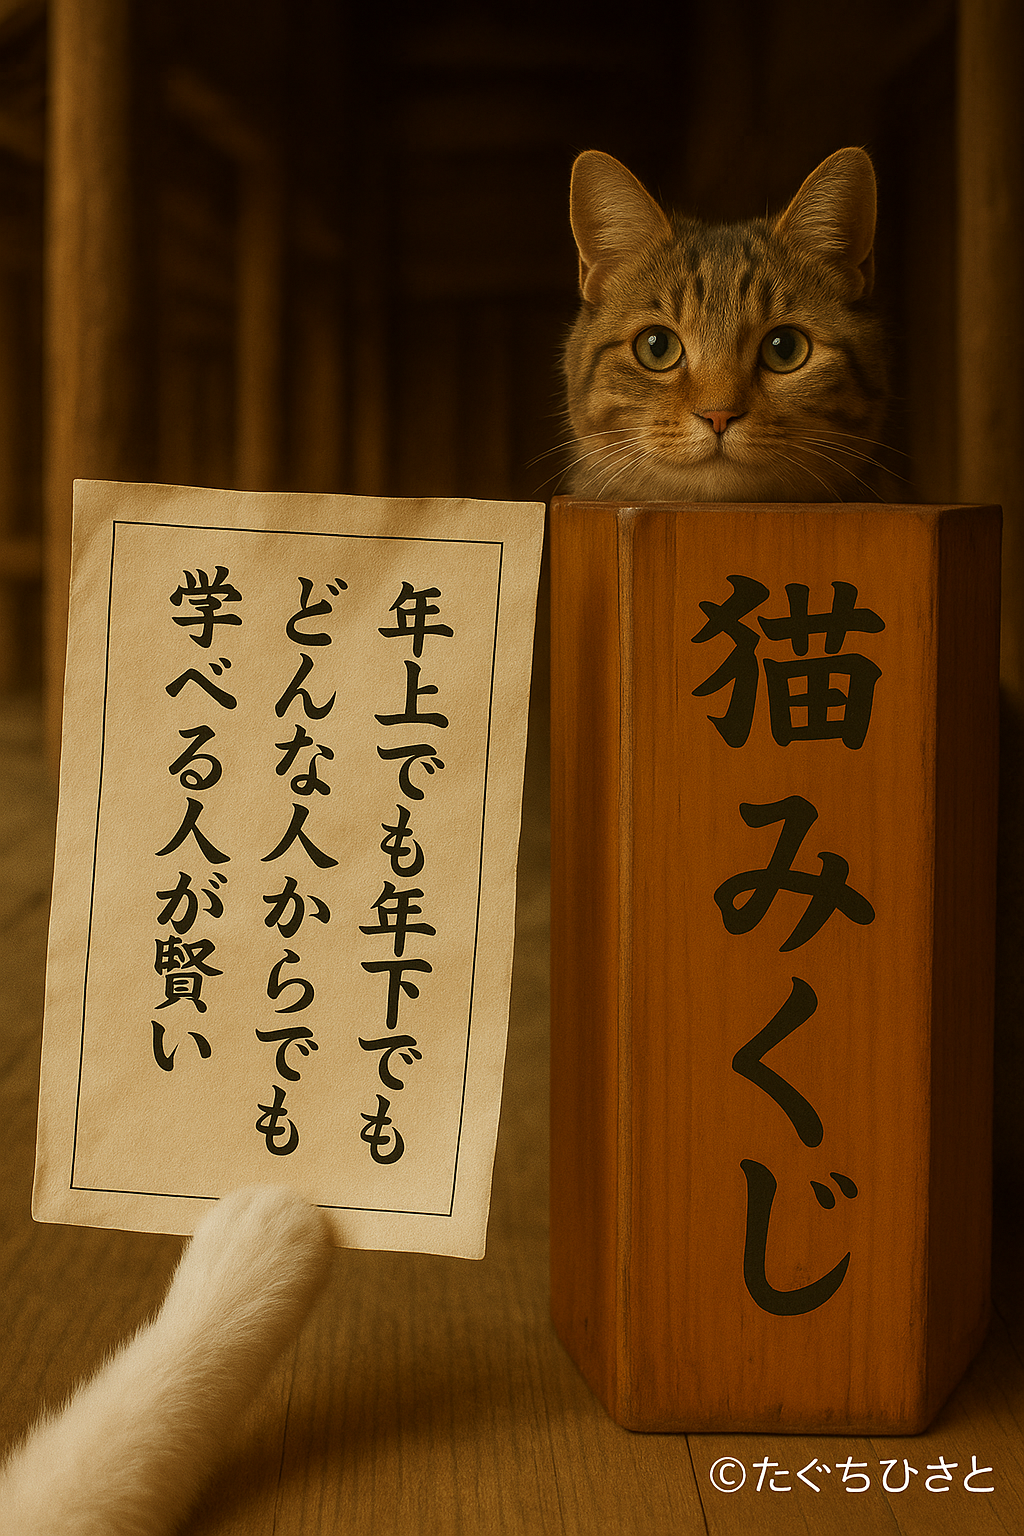 年上でも年下でも
どんな人からでも
学べる人が賢い
猫みくじ
©たぐちひさと